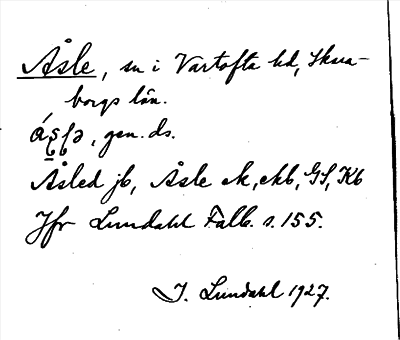 Åsle, sn i Vartofta hd, Skara-
borgs län.
gen. ds.
Åsled jb, Åsle ek, ekb, GS, Kb
Jfr Lundahl Falb. s. 155.
I. Lundahl 1927.